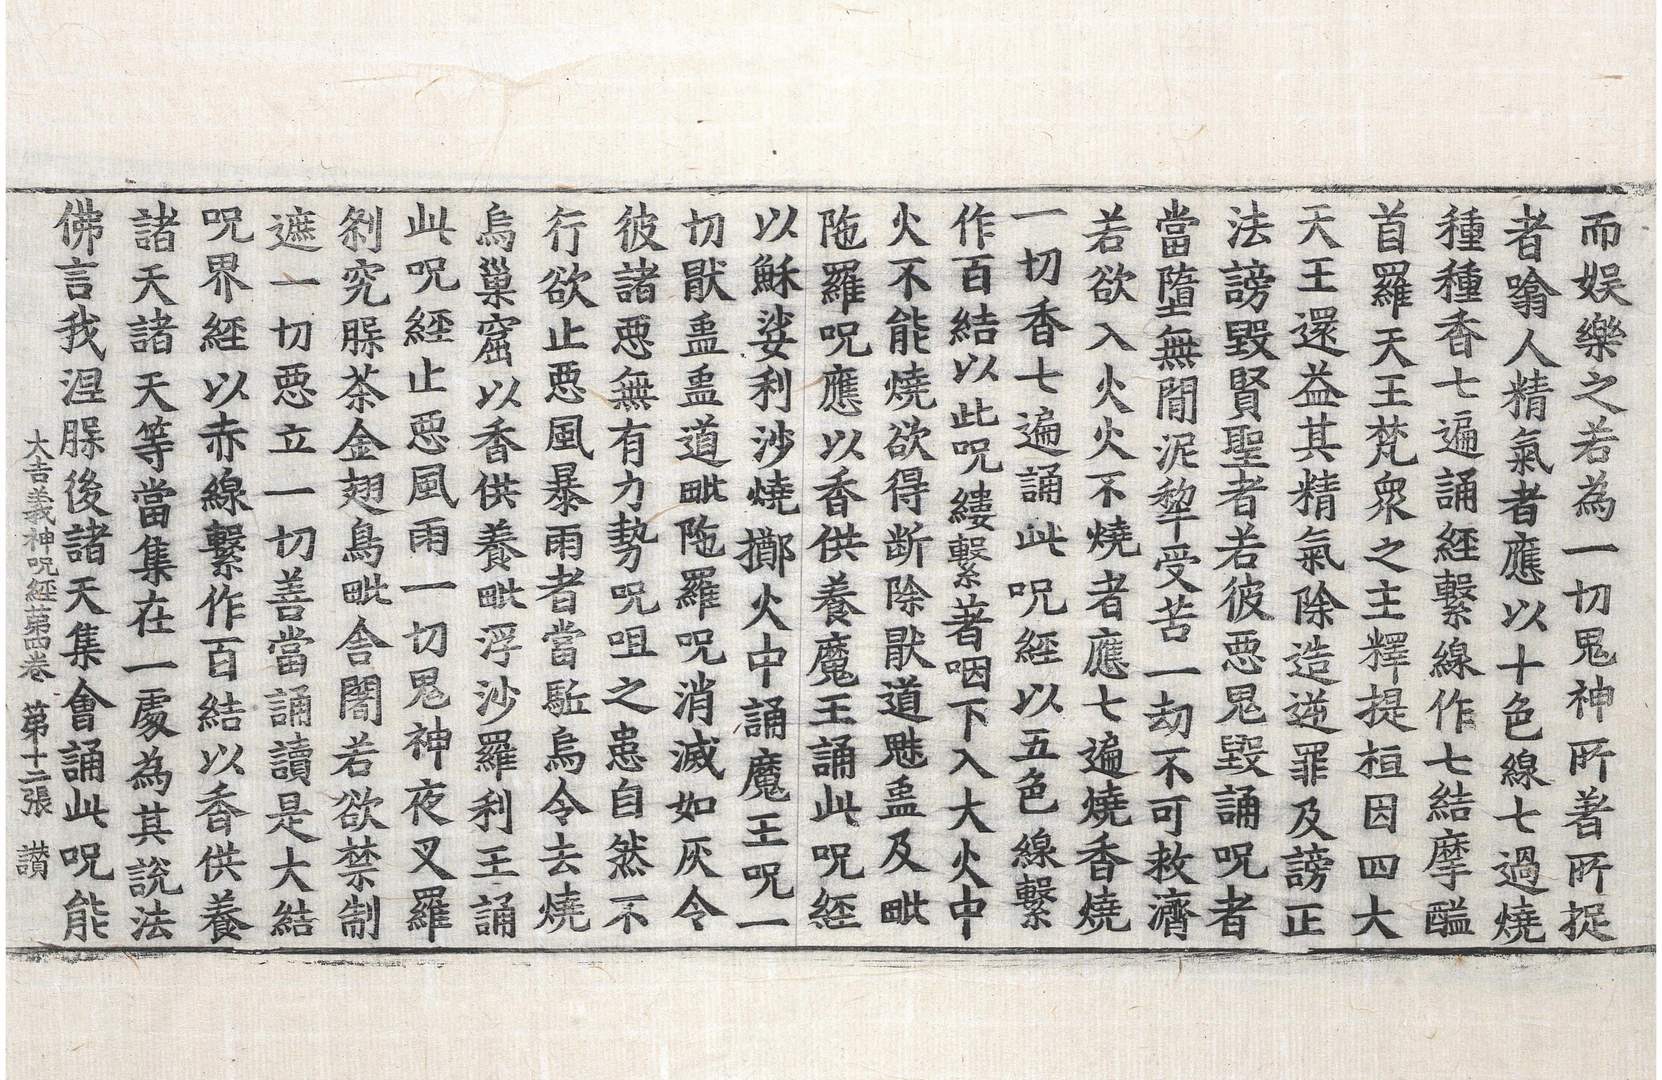 而娛樂之若為一切鬼神所著所捉
者噏人精氣者應以十色線七過燒
種種香七遍誦經繫線作七結摩醯
首羅天王梵衆之主釋提桓因四大
天王還益其精氣除造逆罪及謗正
法謗毀賢聖者若彼惡鬼毀誦呪者
當墮無閒泥犂受苦一劫不可救濟
若欲入火火不燒者應七遍燒香燒
一切香七遍誦此呪經以五色線繫
作百結以此呪縷繫著咽下入大火中
火不能燒欲得断除猒道魋蛊及毗
陁羅呪應以香供養魔王誦此呪經
以穌娑利沙燒擲火中誦魔王呪一
切猒蛊蛊道毗陁羅呪消滅如灰令
彼諸惡無有力勢呪咀之患自然不
行欲止惡風暴雨者當駈烏令去燒
烏巢窟以香供養毗浮沙羅利王誦
此呪經止惡風雨一切鬼神夜叉羅
剎究脲荼金翅鳥毗舍闍若欲禁制
遮一切惡立一切善當誦讀是大結
呪界經以赤線繫作百結以香供養
諸天諸天等當集在一處為其說法
佛言我涅脲後諸天集會誦此呪能
大吉義神呪經苐四卷 第十二張 讃